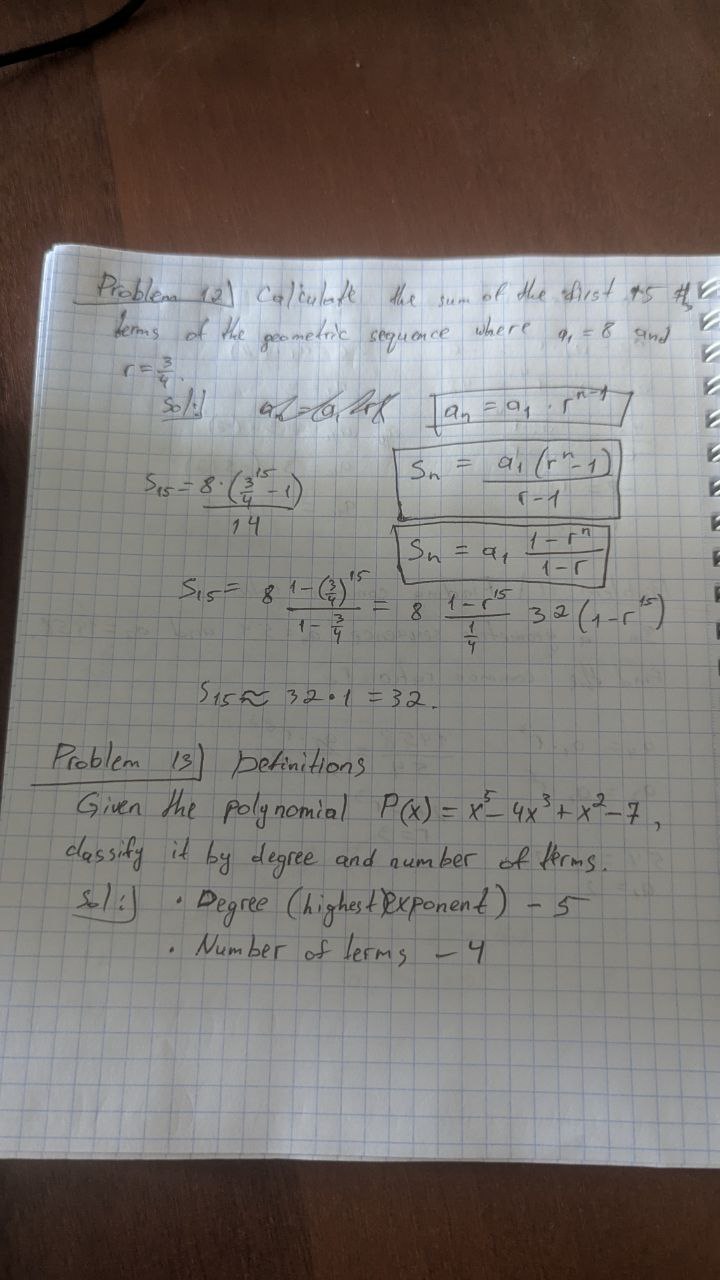 Problem 12) Calculate the sum of the first 15
terms of the geometric sequence where a₁ = 8 and
r = 3/4.
Sol:) aₙ = a₁ · rⁿ⁻¹
Sₙ = a₁ (rⁿ - 1) / r - 1
S₁₅ = 8 · (3/4¹⁵ - 1) / 14
Sₙ = a₁ 1 - rⁿ / 1 - r
S₁₅ = 8 1 - (3/4)¹⁵ / 1 - 3/4 = 8 1 - r¹⁵ / 1/4 32 (1 - r¹⁵)
S₁₅ ≈ 32 · 1 = 32.
Problem 13) Definitions
Given the polynomial P(x) = x⁵ - 4x³ + x² - 7,
classify it by degree and number of terms.
Sol:) · Degree (highest exponent) - 5
· Number of terms - 4